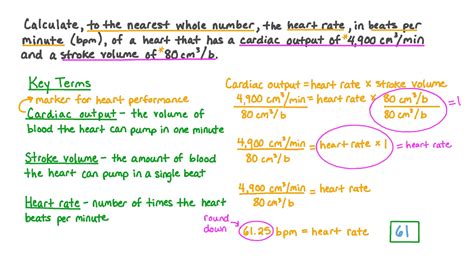 Calculate, to the nearest whole number, the heart rate, in beats per
minute (bpm), of a heart that has a cardiac output of *4,900 cm³/min
and a stroke volume of *80 cm³/b.
Key Terms
*marker for heart performance
Cardiac output - the volume of
blood the heart can pump in one minute
Stroke volume - the amount of blood
the heart can pump in a single beat
Heart rate - number of times the heart
beats per minute
Cardiac output = heart rate × stroke volume
4,900 cm³/min = heart rate × 80 cm³/b = 1
80 cm³/b 80 cm³/b
4,900 cm³/min = heart rate × 1 = heart rate
80 cm³/b
4,900 cm³/min = heart rate
80 cm³/b
round
down
61.25 bpm = heart rate
61